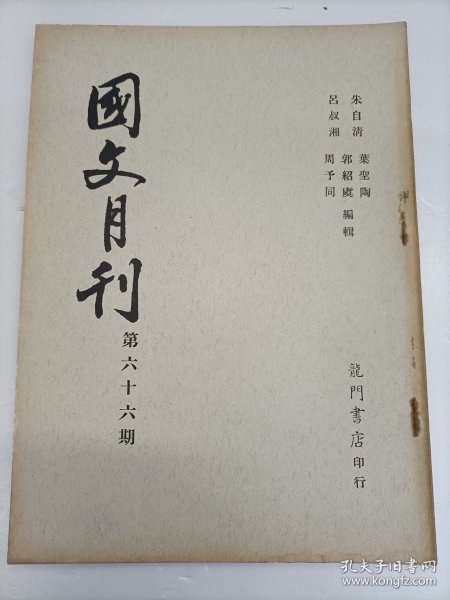 朱自清 葉聖陶
郭紹虞 編輯
呂叔湘 周予同
國文月刊
第六十六期
龍門書店印行
孔夫子旧书网
www.kongfz.com